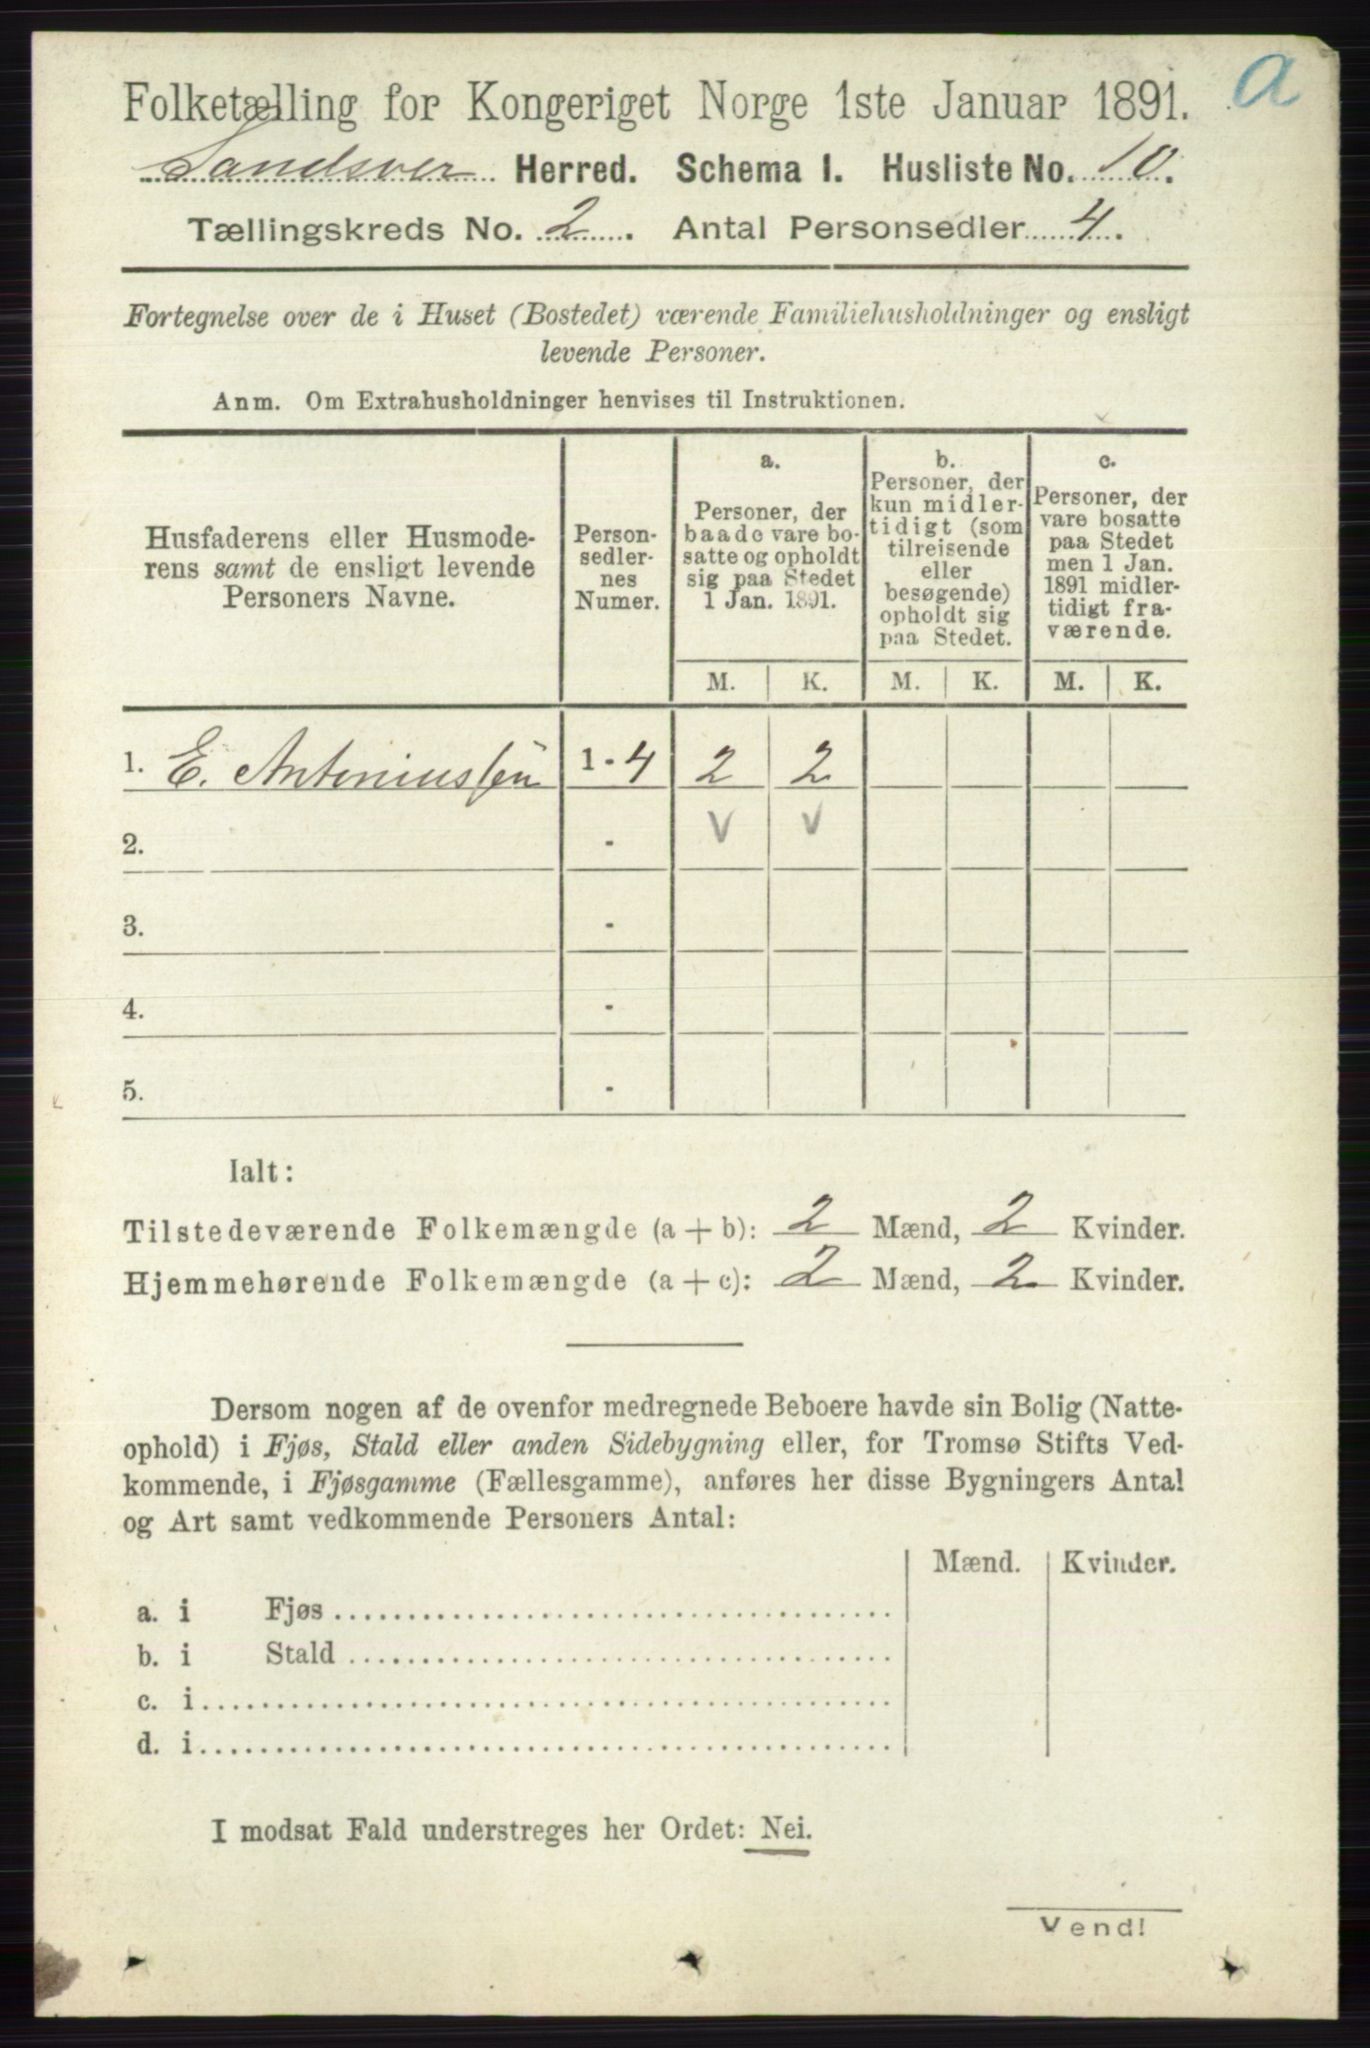 a
Folketælling for Kongeriget Norge 1ste Januar 1891.
Sandsver Herred. Schema I. Husliste No. 10.
Tællingskreds No. 2. Antal Personsedler 4.
Fortegnelse over de i Huset (Bostedet) værende Familiehusholdninger og ensligt
levende Personer.
Anm. Om Extrahusholdninger henvises til Instruktionen.
Husfaderens eller Husmode-
rens samt de ensligt levende
Personers Navne.
Person-
sedler-
nes
Numer.
a.
Personer, der
baade vare bo-
satte og opholdt
sig paa Stedet
1 Jan. 1891.
b.
Personer, der
kun midler-
tidigt (som
tilreisende
eller
besøgende)
opholdt sig
paa Stedet.
c.
Personer, der
vare bosatte
paa Stedet
men 1 Jan.
1891 midler-
tidigt fra-
værende.
M. K. M. K. M. K.
1. E. Antoniussen 1-4 2 2
2. - V V
3. -
4. -
5. -
Ialt:
Tilstedeværende Folkemængde (a + b): 2 Mænd, 2 Kvinder.
Hjemmehørende Folkemængde (a + c): 2 Mænd, 2 Kvinder.
Dersom nogen af de ovenfor medregnede Beboere havde sin Bolig (Natte-
ophold) i Fjøs, Stald eller anden Sidebygning eller, for Tromsø Stifts Ved-
kommende, i Fjøsgamme (Fællesgamme), anføres her disse Bygningers Antal
og Art samt vedkommende Personers Antal:
Mænd. Kvinder.
a. i Fjøs
b. i Stald
c. i
d. i
I modsat Fald understreges her Ordet: Nei.
Vend!